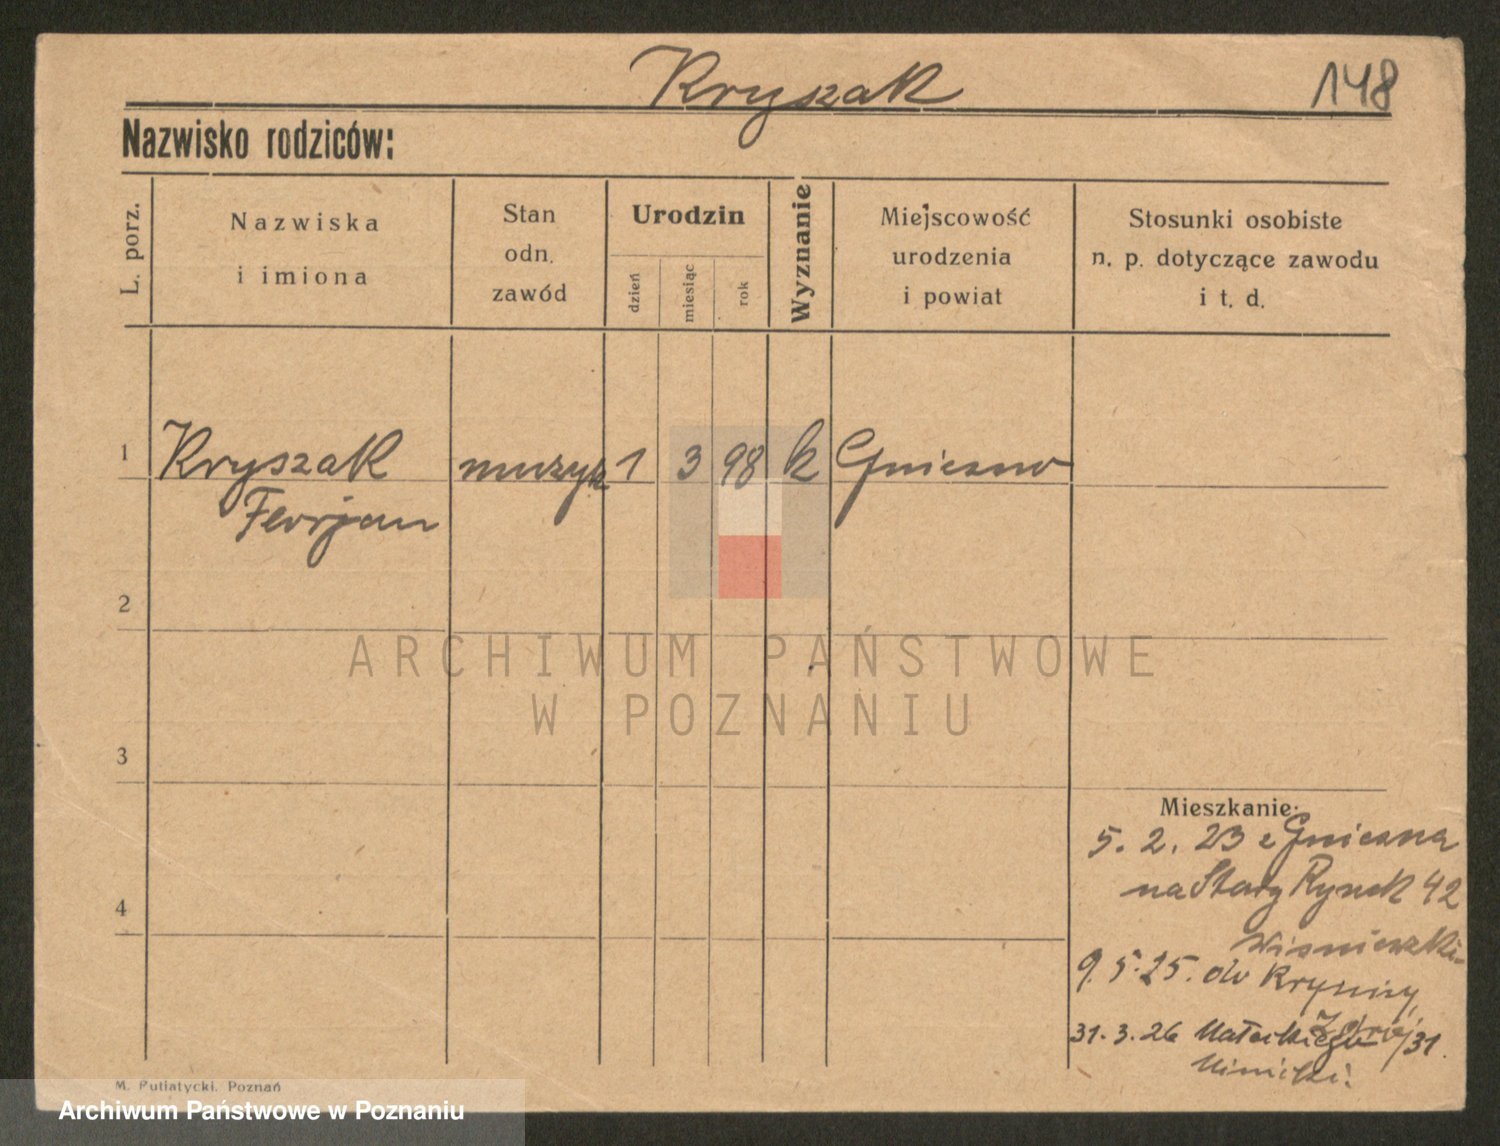 Kryszak
148
Nazwisko rodziców:
L. porz.
Nazwiska
i imiona
Stan
odn.
zawód
Urodzin
dzień
miesiąc
rok
Wyznanie
Miejscowość
urodzenia
i powiat
Stosunki osobiste
n. p. dotyczące zawodu
i t. d.
1
Kryszak
Florjan
muzyk
1
3
98
k
Gniezno
2
ARCHIWUM PAŃSTWOWE
W POZNANIU
3
Mieszkanie:
5. 2. 23 z Gniezna
na Stary Rynek 42
4
Wiśniewski
9. 5. 25. do Krynicy
Zdrój
31. 3. 26 Małeckiego 31.
M. Putiatycki. Poznań
Archiwum Państwowe w Poznaniu